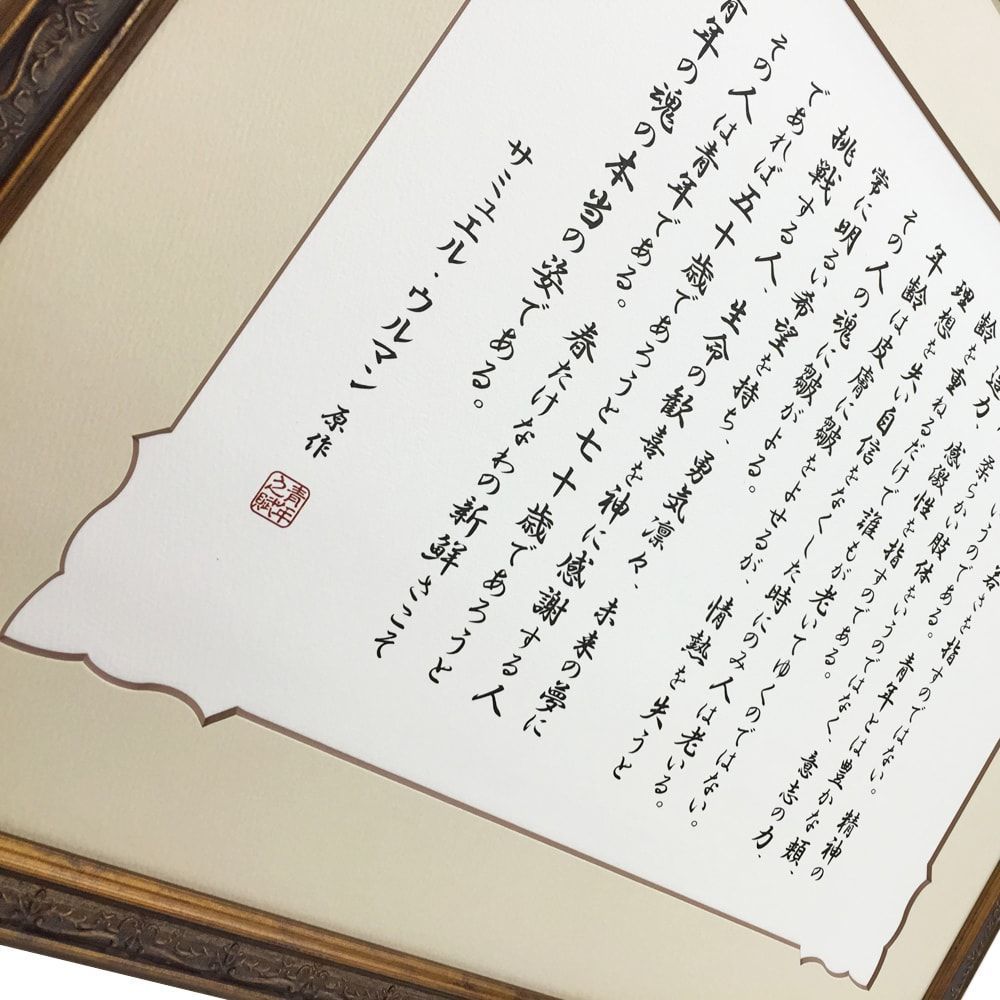 若さを指すのではない。精神の
いうのである。青年とは豊かな頬、
柔らかい肢体をいうのではなく、意志の力、
造力、感激性を指すのである。
齢を重ねるだけで誰もが老いてゆくのではない。
理想を失い自信をなくした時にのみ人は老いる。
年齢は皮膚に皺をよせるが、情熱を失うと
その人の魂に皺がよる。
常に明るい希望を持ち、勇気凛々、未来の夢に
挑戦する人、生命の歓喜を神に感謝する人
であれば五十歳であろうと七十歳であろうと
その人は青年である。春たけなわの新鮮さこそ
青年の魂の本当の姿である。
サミュエル・ウルマン 原作
青年之賦